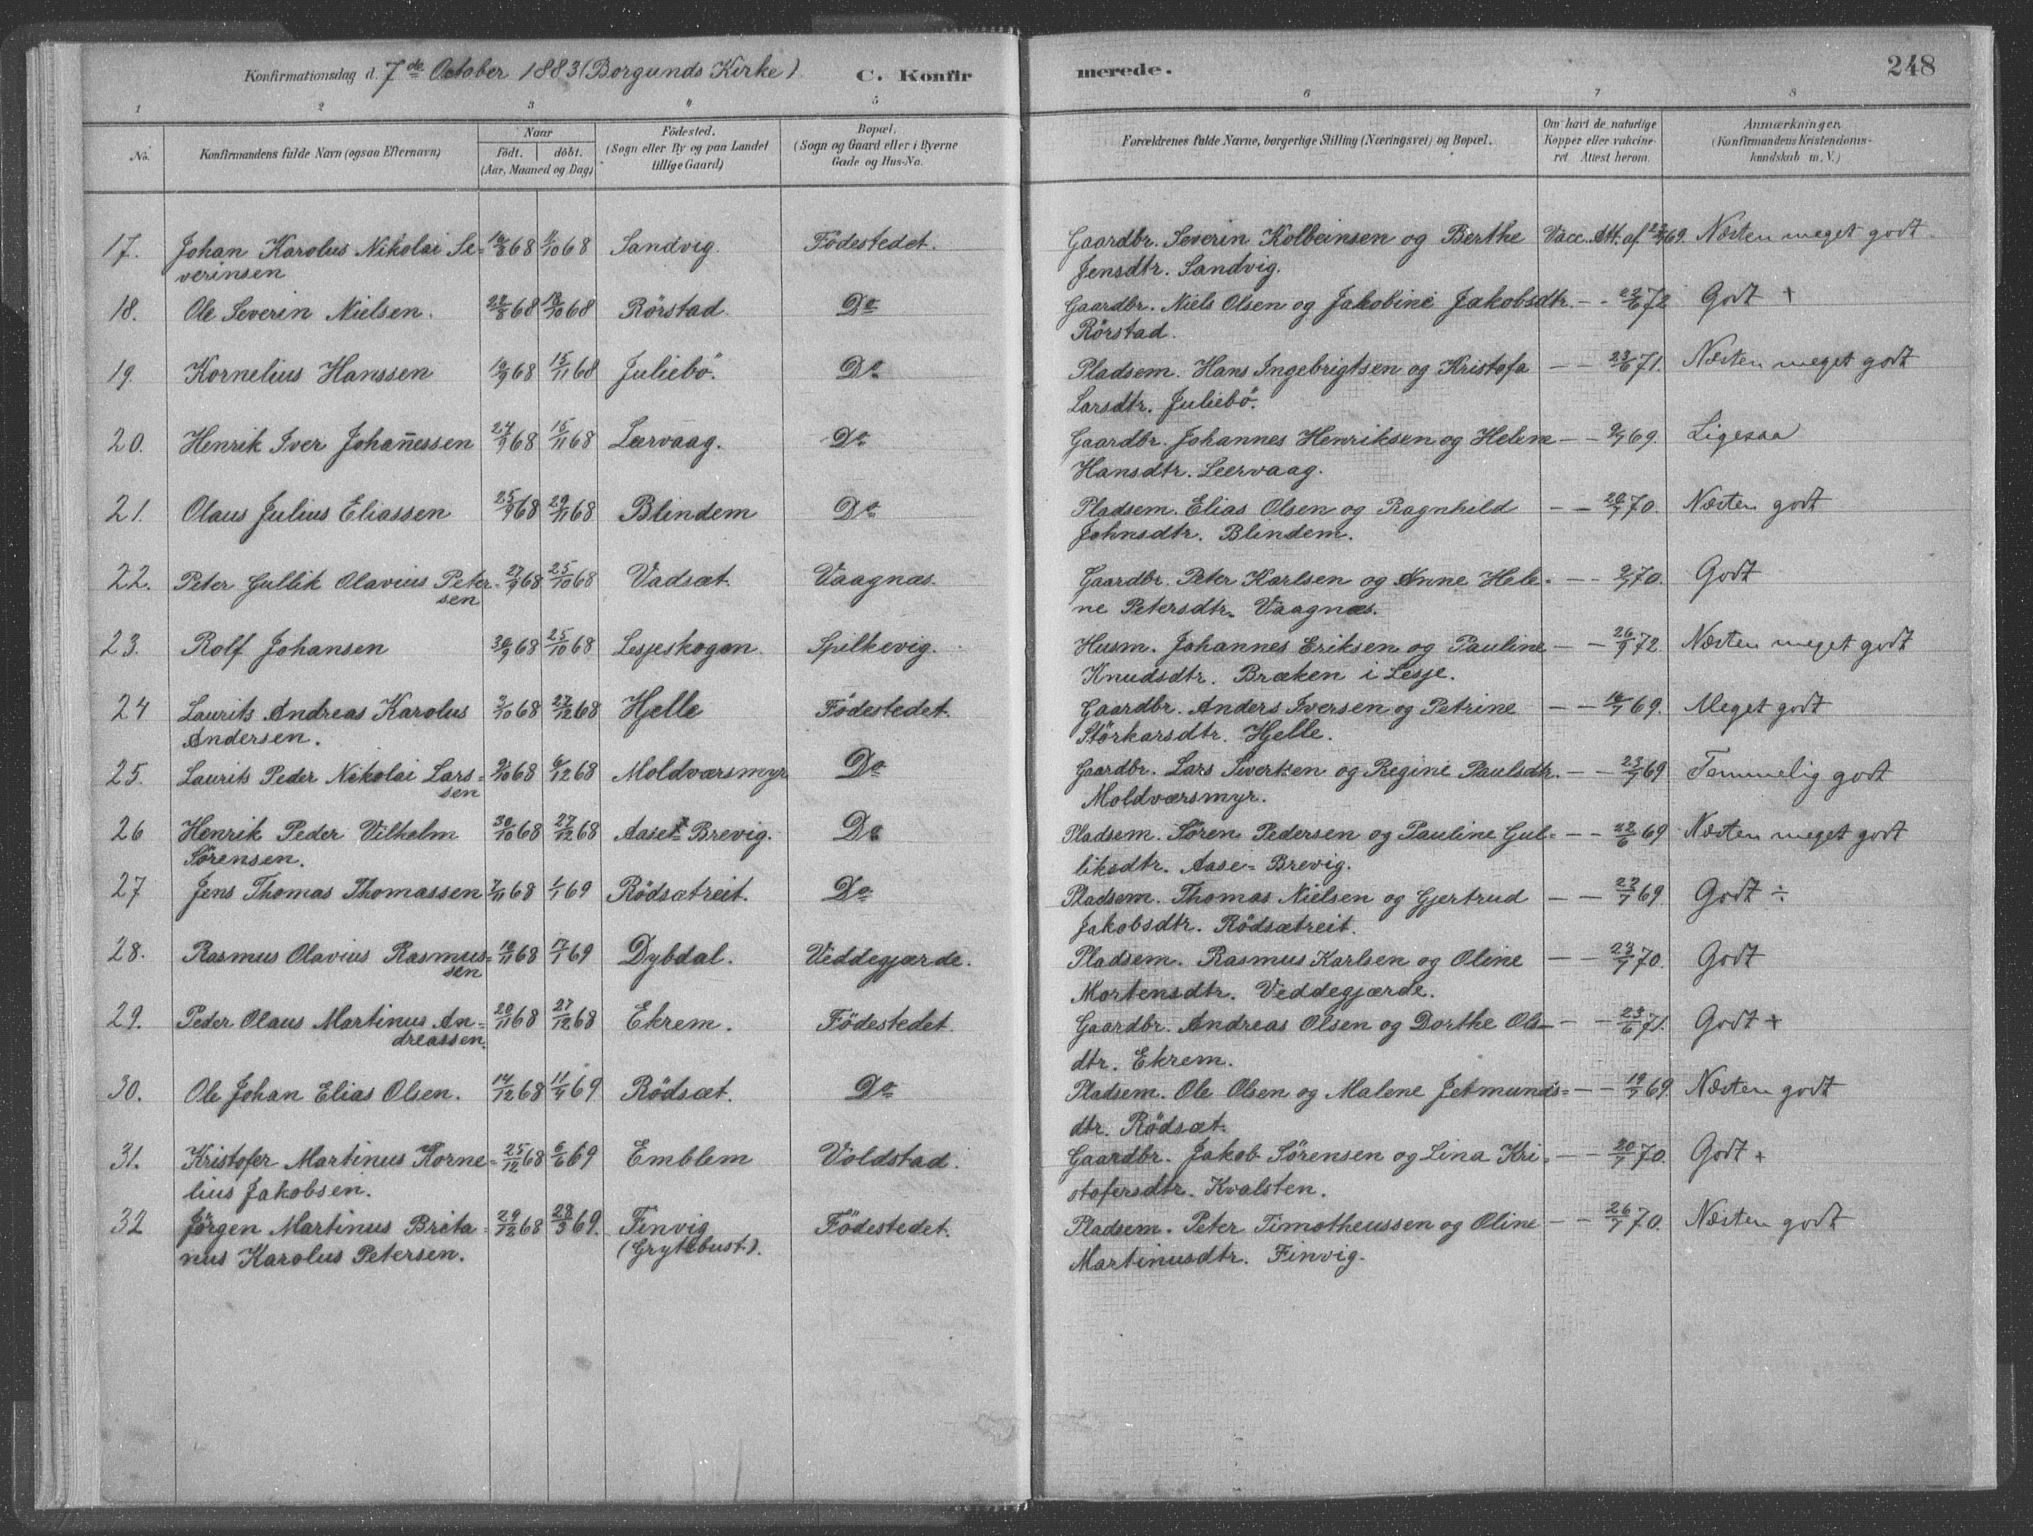 Konfirmationsdag d. 7de October 1883 (Borgunds Kirke) C. Konfir merede. 248
1 2 3 4 5 6 7 8
No. Konfirmandens fulde Navn (ogsaa Efternavn) Naar födt. döbt. (Aar, Maaned og Dag) Födested. (Sogn eller By og paa Landet tillige Gaard) Bopæl. (Sogn og Gaard eller i Byerne Gade og Hus-No. Forældrenes fulde Navne, borgerlige Stilling (Næringsvei) og Bopæl. Om havt de naturlige Kopper eller vakcineret. Attest herom. Anmærkninger. (Konfirmandens Kristendomskundskab m. V.)
17. Johan Karolus Nikolai Se- 68 68 Sandvig. Födestedet. Gaardbr. Severin Kolbeinsen og Berthe Vacc. Att. af 69. Næsten meget godt
verinsen Jensdtr. Sandvig.
18. Ole Severin Nielsen. 22/8 68 18/10 68 Rörstad. Do Gaardbr. Niels Olsen og Jakobine Jakobsdtr. — - 22/6 72 Godt +
Rörstad.
19. Kornelius Hanssen 68 15/11 68 Juliebö. Do Pladsem. Hans Ingebrigtsen og Kristofa — — 23/6 71. Næsten meget godt
Larsdtr. Juliebö.
20. Henrik Iver Johan̄essen 24/9 68 15/11 68 Leervaag. Do Gaardbr. Johannes Henriksen og Helene — — 9/7 69. Ligesaa
Hansdtr. Leervaag.
21. Olaus Julius Eliassen 25/9 68 29/11 68 Blindem Do Pladsem. Elias Olsen og Ragnhild — — 20/7 70. Næsten godt
Johnsdtr. Blindem.
22. Peter Gullik Olavius Peter- 27/9 68 25/10 68 Vadsæt. Vaagnæs. Gaardbr. Peter Karlsen og Anne Hele- — — 9/7 70. Godt
sen ne Petersdtr. Vaagnæs.
23. Rolf Johansen 30/9 68 25/10 68 Lesjeskogen Spilkevig. Husm. Johannes Eriksen og Pauline — — 26/9 72. Næsten meget godt
Knudsdtr. Bræken i Lesje.
24 Laurits Andreas Karolus 2/10 68 27/12 68 Hjelle Födestedet. Gaardbr. Anders Iversen og Petrine — — 69. Meget godt
Andersen. Störkarsdtr. Hjelle.
25. Laurits Peder Nikolai Lars- 9/10 68 6/12 68 Moldværsmyr Do Gaardbr. Lars Sivertsen og Regine Paulsdtr. — — 23/7 69 Temmelig godt
sen Moldværsmyr.
26 Henrik Peder Vilhelm 30/10 68 27/12 68 Aase- Brevig. Do Pladsem. Sören Pedersen og Pauline Gul- — — 22/6 69 Næsten meget godt
Sörensen. liksdtr. Aase- Brevig.
27 Jens Thomas Thomassen 7/11 68 1/1 69 Rödsætreit. Do Pladsem. Thomas Nielsen og Gjertrud — — 22/7 69 Godt ÷
Jakobsdtr. Rödsætreit.
28. Rasmus Olavius Rasmus- 68 17/1 69 Dybdal. Veddegjærde. Pladsem. Rasmus Karlsen og Oline — — 23/7 70. Godt
sen Mortensdtr. Veddegjærde.
29. Peder Olaus Martinus An- 20/11 68 27/12 68 Ekrem. Födestedet Gaardbr. Andreas Olsen og Dorthe Ols- — — 23/6 71. Godt +
dreassen. dtr. Ekrem.
30. Ole Johan Elias Olsen. 14/12 68 11/4 69 Rödsæt. Do Pladsem. Ole Olsen og Malene Jetmunds- — — 19/7 69. Næsten godt
dtr. Rödsæt.
31. Kristofer Martinus Korne- 25/12 68 6/6 69 Emblem Voldstad. Gaardbr. Jakob Sörensen og Lina Kri- — — 20/7 70. Godt +
lius Jakobsen. stofersdtr. Kvalsten.
32 Jörgen Martinus Brita- 29/12 68 28/3 69. Finvig Födestedet. Pladsem. Peter Timotheussen og Oline — — 26/7 70. Næsten godt
nus Karolus Petersen. (Gryttebust). Martinusdtr. Finvig.